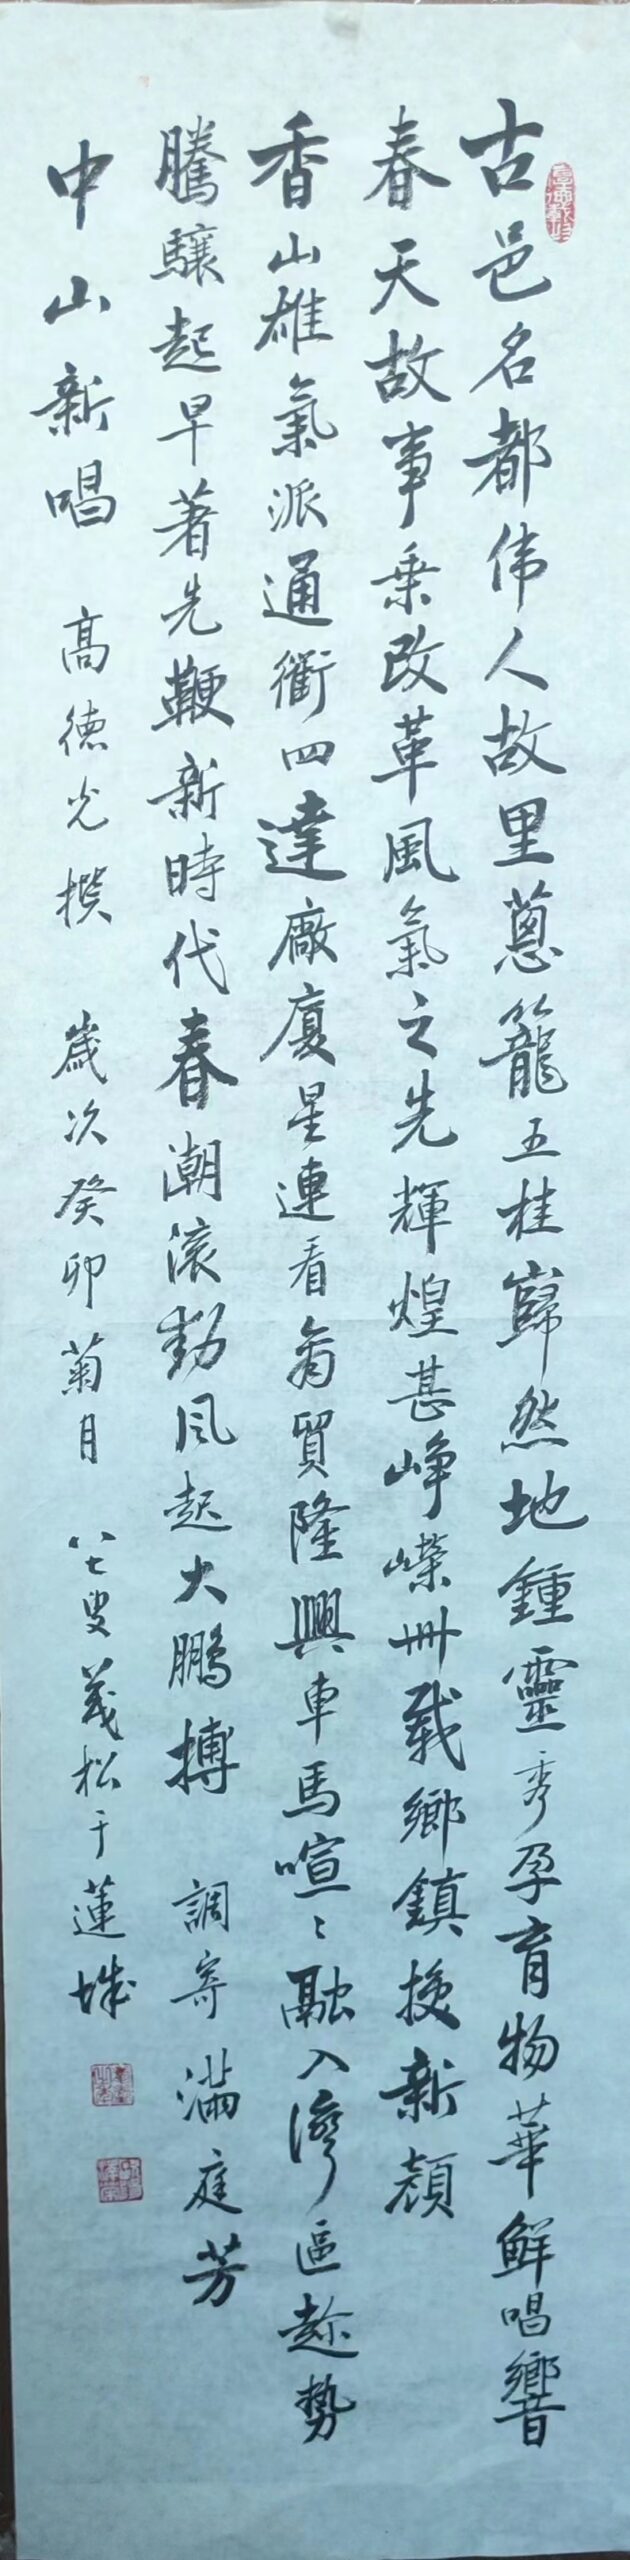 古邑名都伟人故里蔥籠五桂巋然地鍾靈秀孕育物華鮮唱響
春天故事乗改革風氣之先輝煌甚峥嶸卅載鄉鎮換新顔
香山雄氣派通衢四達廠廈星連看商貿隆興車馬喧〻融入灣區趁勢
騰驤起早著先鞭新時代春潮滚動风起大鵬搏 調寄滿庭芳
中山新唱 高德光撰 歲次癸卯菊月 八七叟義松于蓮城